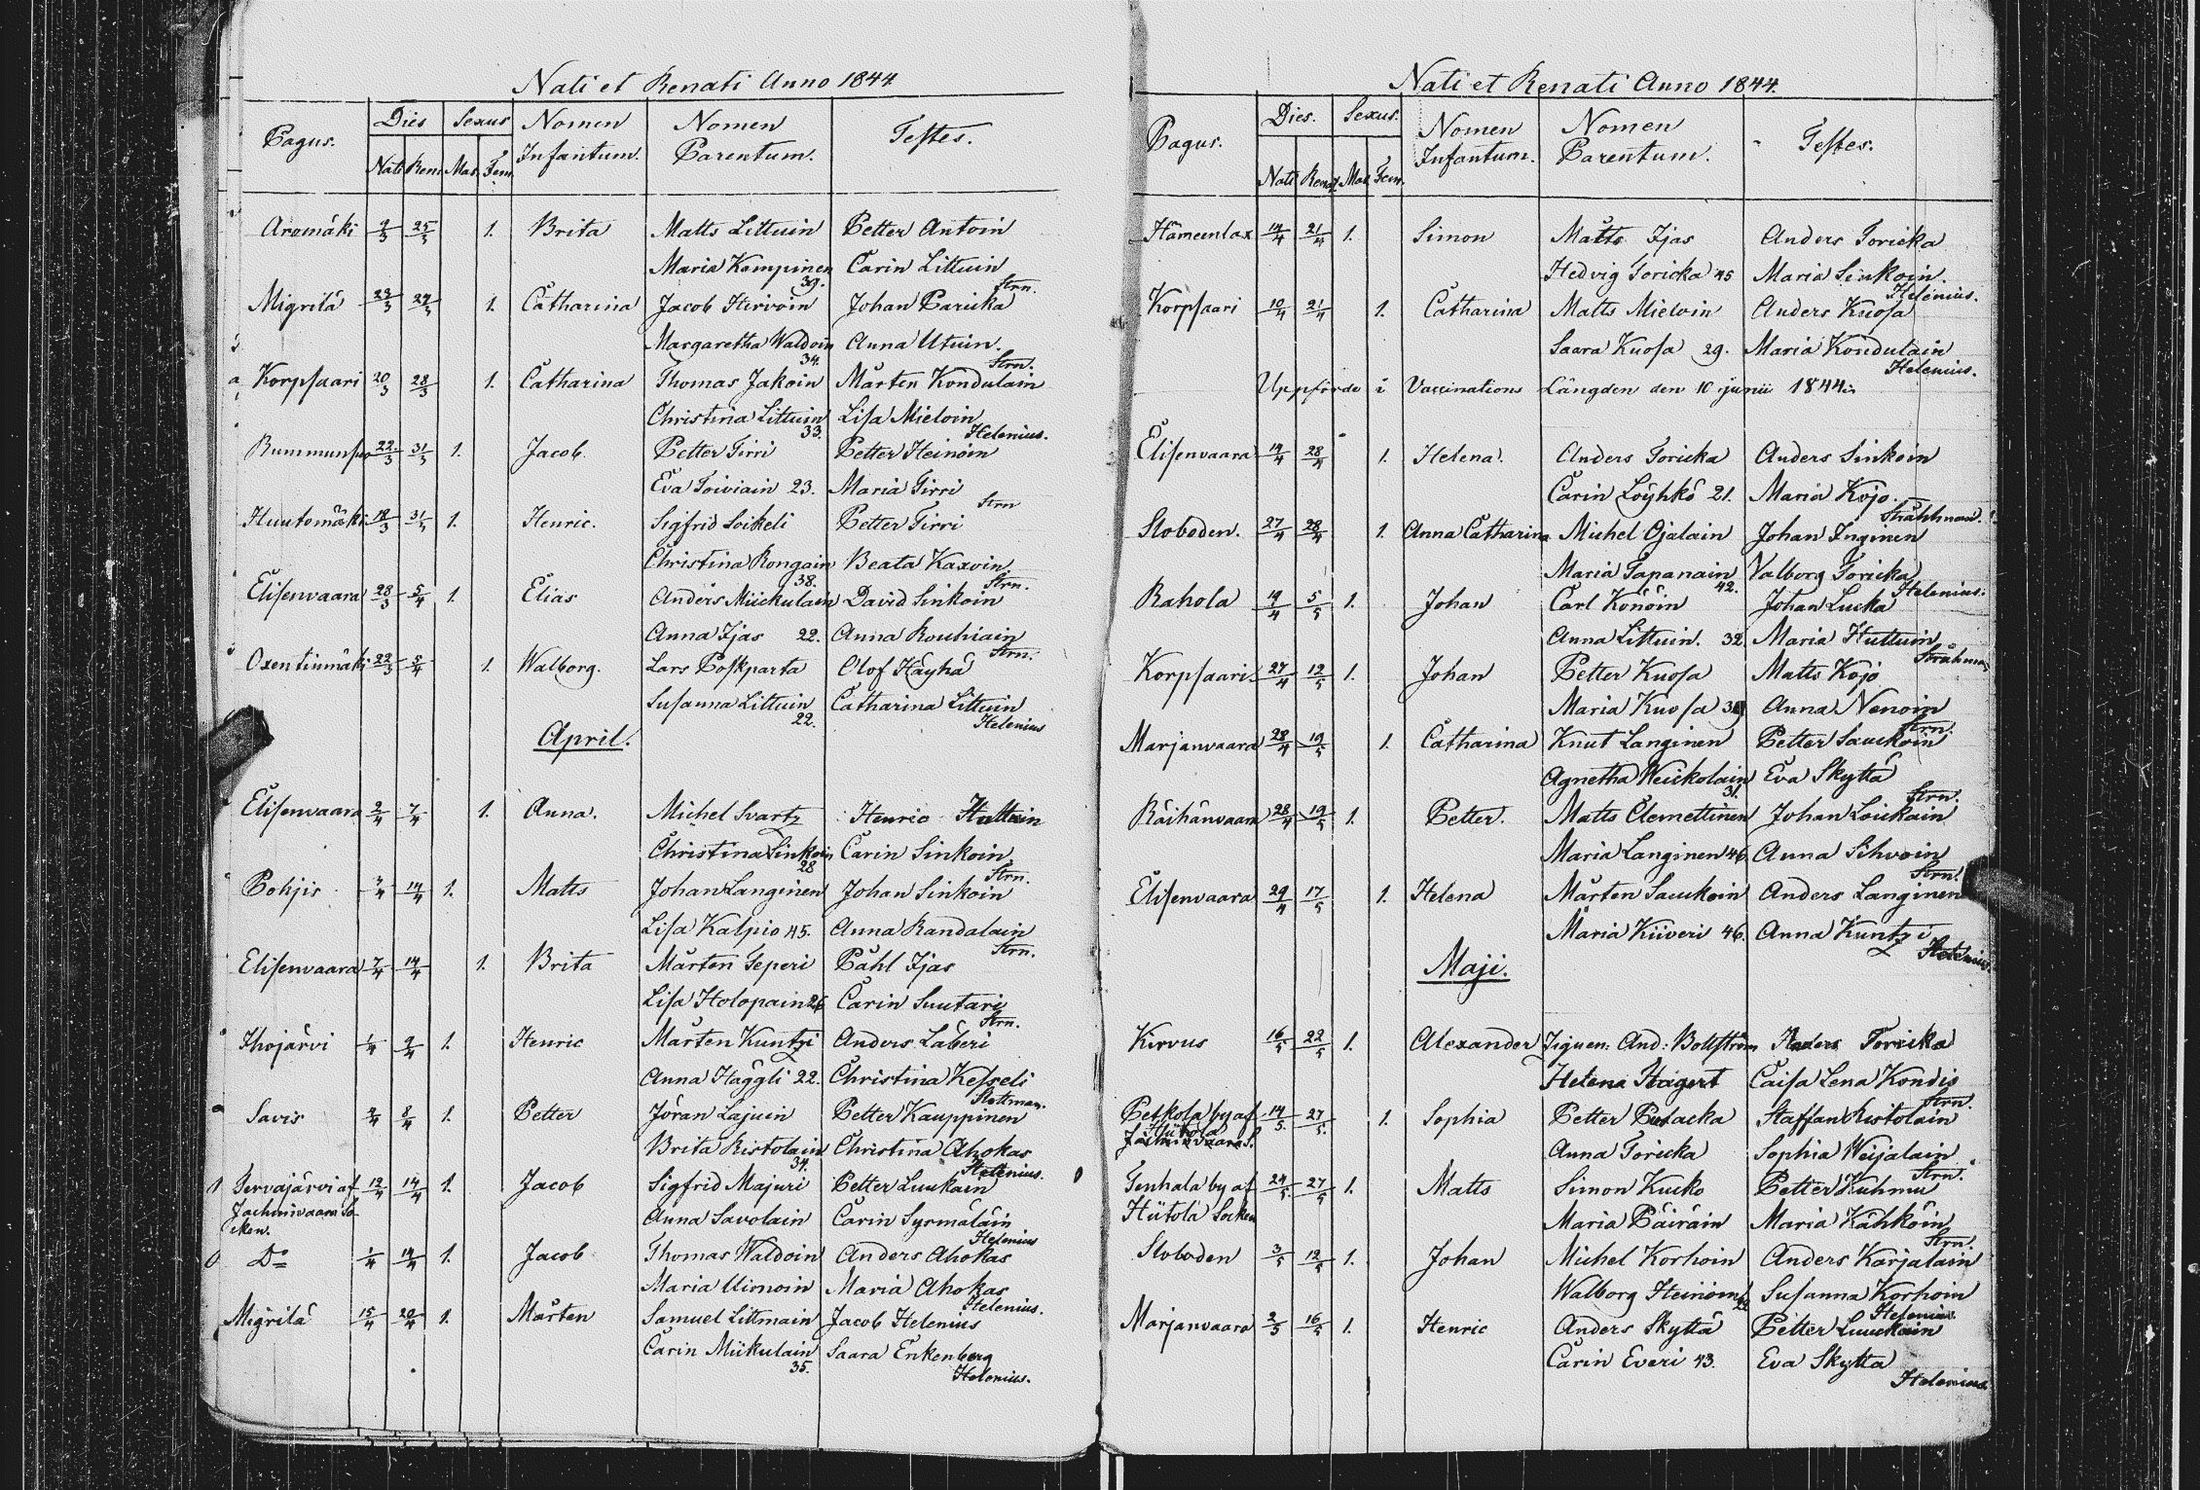 Nati et Renati Anno 1844
Pagus. Dies Sexus Nomen Infantum. Nomen Parentum. Testes.
Nati Ren. Mas. Fem.
Aromäki 9/3 25/3 1. Brita Matts Littuin Petter Antoin
Maria Kampinen 39. Carin Littuin Strn.
Migrilä 23/3 27/3 1. Catharina Jacob Hirvoin Johan Paricka
Margaretha Waldoin 34. Anna Utuin. Strn.
Korpsaari 20/3 28/3 1. Catharina Thomas Jakoin Mårten Kondulain
Christina Littuin 33. Lisa Mieloin Helenius.
22/3 31/3 1. Jacob. Petter Tirri Petter Heinoin
Eva Toiviain 23. Maria Tirri Strn
Huutomäki 18/3 31/3 1. Henric. Sigfrid Soikeli Petter Tirri
Christina Rongain 38. Beata Kaxoin Strn.
Elisenvaara 28/3 5/4 1. Elias Anders Mickulain David Sinkoin
Anna Ijas 22. Anna Rouhiain Strn.
Oxentiumäki 22/3 5/4 1. Walborg. Lars Poskparta Olof Häyhä
Susanna Littuin 22. Catharina Littuin Helenius
April.
Elisenvaara 2/4 7/4 1. Anna. Michel Svartz Henric Huttuin
Christina Sinkoin 28 Carin Sinkoin Strn.
Pohjis 4/4 14/4 1. Matts Johan Langinen Johan Sinkoin
Lisa Kalpio 45. Anna Randalain Strn.
Elisenvaara 7/4 14/4 1. Brita Mårten Seperi Påhl Ijas
Lisa Holopain 26 Carin Suutari Strn.
Ihojärvi 1/4 2/4 1. Henric Mårten Kuntzi Anders Läberi
Anna Häggli 22. Christina Kesseli
Savis 2/4 8/4 1. Petter Jöran Lajuin Petter Kauppinen
Brita Ristolain 34. Christina Ahokas Helenius.
Tervajärvi af 12/4 14/4 1. Jacob Sigfrid Majuri Petter Luukain
Jachimvaara Socken. Anna Savolain Carin Syrmäläin Helenius
Do 1/4 14/4 1. Jacob Thomas Waldoin Anders Ahokas
Maria Uimoin Maria Ahokas Helenius.
Migrilä 15/4 20/4 1. Mårten Samuel Littmain Jacob Helenius
Carin Mickulain 35. Saara Enkenberg Helenius.
Nati et Renati Anno 1844.
Pagus. Dies. Sexus. Nomen Infantum. Nomen Parentum. Testes.
Nati Renat. Mas. Fem.
Hämeenlax 14/4 21/4 1. Simon Matts Ijas Anders Toricka
Hedvig Toricka 45 Maria Sinkoin Helenius.
Korpsaari 10/4 21/4 1. Catharina Matts Mieloin Anders Kuosa
Saara Kuosa 29. Maria Kondulain Helenius.
Uppförde i Vaccinations Längden den 10 junii 1844
Elisenvaara 14/4 28/4 1. Helena. Anders Toricka Anders Sinkoin
Carin Löyhkö 21. Maria Kojo. Stråhlman.
Sloboden. 27/4 28/4 1. Anna Catharina Michel Ojalain Johan Inginen
Maria Tapanain 42. Valborg Toricka Helenius.
Rahola 19/4 5/5 1. Johan Carl Könöin Johan Lucka
Anna Littuin. 32. Maria Huttuin Stråhlman
Korpsaari 27/4 12/5 1. Johan Petter Kuosa Matts Kojo
Maria Kuosa Anna Nenoin Strn.
Marjanvaara 28/4 19/5 1. Catharina Knut Langinen Petter Sauckoin
Agnetha Weickolain 31. Eva Skyttä Strn.
Räihänvaara 28/4 19/5 1. Petter. Matts Clemettinen Johan Loickain
Maria Langinen 46. Anna Sihvoin Strn.
Elisenvaara 29/4 17/5 1. Helena Mårten Sauckoin Anders Langinen
Maria Kiiveri 46. Anna Kuntzi Helenius.
Maji.
Kirvus 16/5 22/5 1. Alexander Ziguen: And: Bollström Anders Toricka
Helena Hagert Caisa Lena Kondis Strn.
Petkola by af 14/5 27/5 1. Sophia Petter Staffan Ristolain
Hiitola
Anna Toricka Sophia Weijalain Strn.
Tenhala by af 24/5 27/5 1. Matts Simon Kucko Petter Kuhmu
Hiitola Socken Maria Päiräin Maria Kähköin Strn.
Sloboden 3/5 12/5 1. Johan Michel Korhoin Anders Karjalain
Walborg Heinoin Susanna Korhoin Helenius
Marjanvaara 2/5 16/5 1. Henric Anders Skyttä Petter Luuckain
Carin Everi 43. Eva Skyttä Helenius